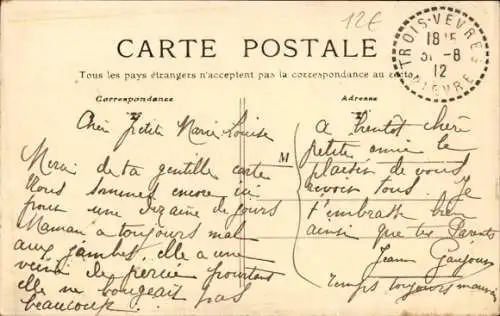 12€
CARTE POSTALE
Tous les pays étrangers n'acceptent pas la correspondance au recto
Correspondance
Adresse
TROIS-VEVRES
18 15
31-8
12
NIEVRE
M
Chère Petite Marie-Louise
Merci de ta gentille carte
Nous sommes encore ici
pour une dizaine de jours
Maman a toujours mal
aux jambes, elle a une
veine de percée pourtant
elle ne bougeait pas
beaucoup.
A bientôt chère
petite amie le
plaisir de vous
revoir tous. Je
t'embrasse bien
ainsi que tes Parents
Temps toujours mauvais